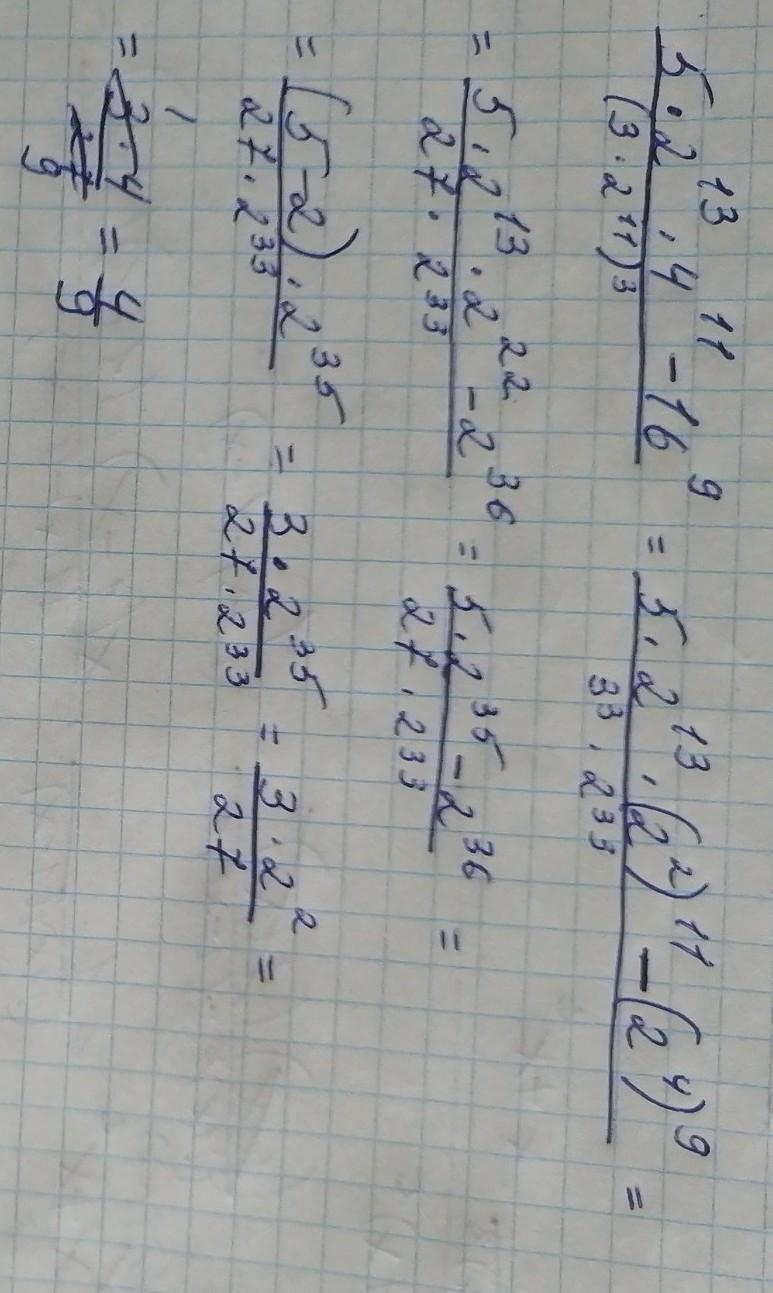 5·2¹³·4¹¹ − 16⁹ / (3·2¹¹)³ = 5·2¹³·(2²)¹¹ − (2⁴)⁹ / 3³·2³³ =
= 5·2¹³·2²² − 2³⁶ / 27·2³³ = 5·2³⁵ − 2³⁶ / 27·2³³ =
= (5−2)·2³⁵ / 27·2³³ = 3·2³⁵ / 27·2³³ = 3·2² / 27 =
= 3·4 / 27 = 4 / 9
1
9